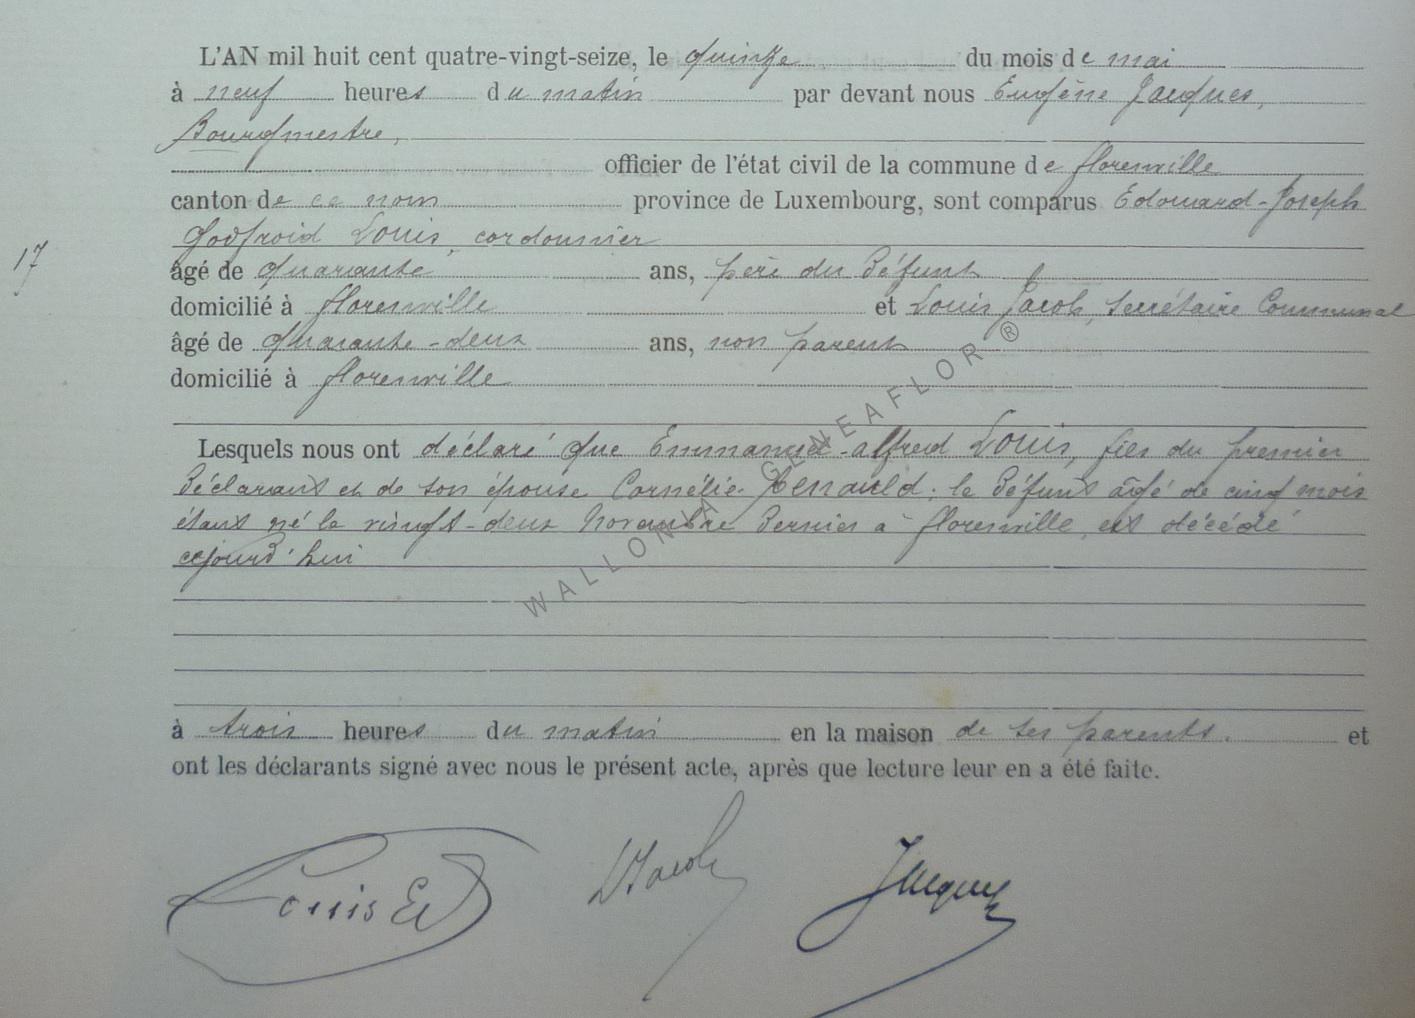 L'AN mil huit cent quatre-vingt-seize, le quinze du mois de mai
à neuf heures du matin par devant nous Eugène Jacques,
Bourgmestre,
officier de l'état civil de la commune de florenville
canton de ce nom province de Luxembourg, sont comparus Edouard-Joseph
Godfroid Louis, cordonnier
17
âgé de quarante ans, père du défunt
domicilié à florenville et Louis Jacob, Secrétaire Communal
âgé de quarante-deux ans, non parent
domicilié à florenville
Lesquels nous ont déclaré que Emmanuel-alfred Louis, fils du premier
déclarant et de son épouse Cornélie Renauld; le défunt âgé de cinq mois
étant né le vingt-deux Novembre dernier à florenville, est décédé
cejourd'hui
WALLONIA GENEAFLOR ®
à trois heures du matin en la maison de ses parents. et
ont les déclarants signé avec nous le présent acte, après que lecture leur en a été faite.
Louis Ed LJacob Jacques